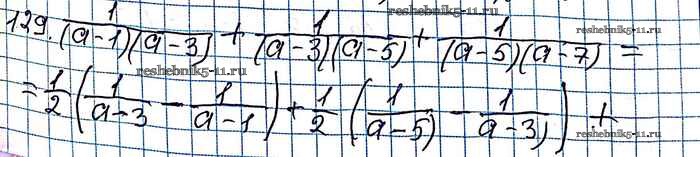 reshebnik5-11.ru
129. 1/((a-1)(a-3)) + 1/((a-3)(a-5)) + 1/((a-5)(a-7)) =
reshebnik5-11.ru
reshebnik5-11.ru
= 1/2 (1/(a-3) - 1/(a-1)) + 1/2 (1/(a-5) - 1/(a-3)) +
reshebnik5-11.ru